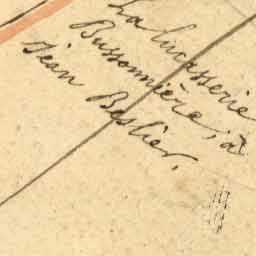 La Lucasserie
Bussonnière, à
Jean Beslier.